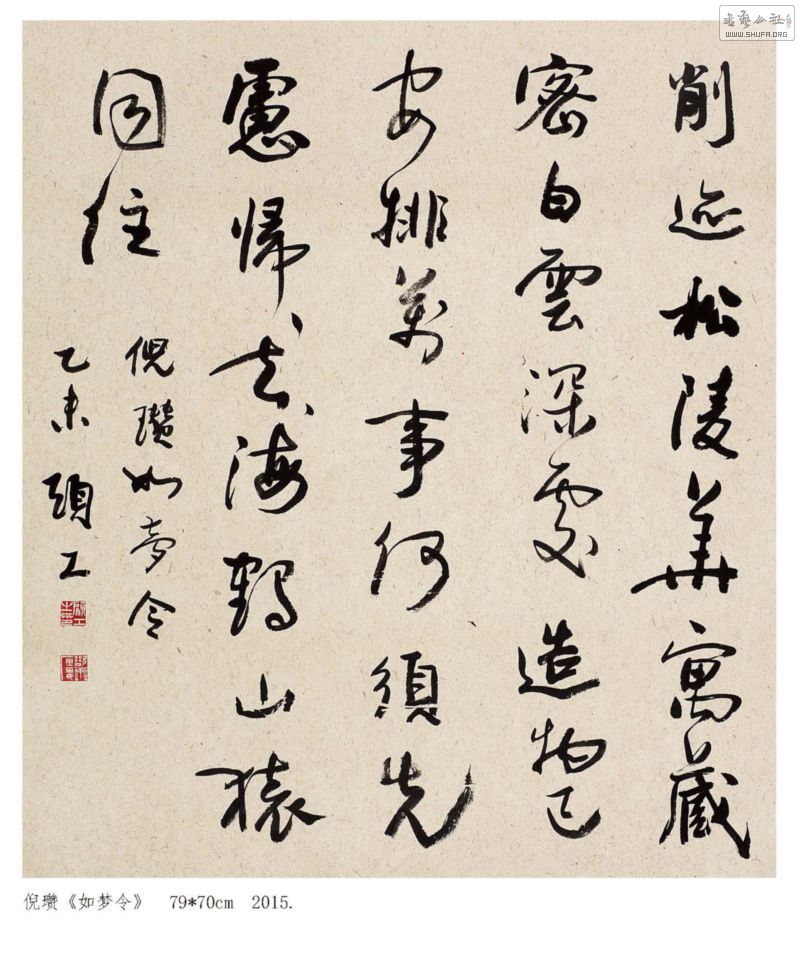 書藝公社
WWW.SHUFA.ORG
削迹松陵華寓藏
密白雲深處造物已
安排萬事何須先
慮歸〻去〻海鶴山猿
同住
倪瓚如夢令
乙未顧工
倪瓒《如梦令》 79*70cm 2015.